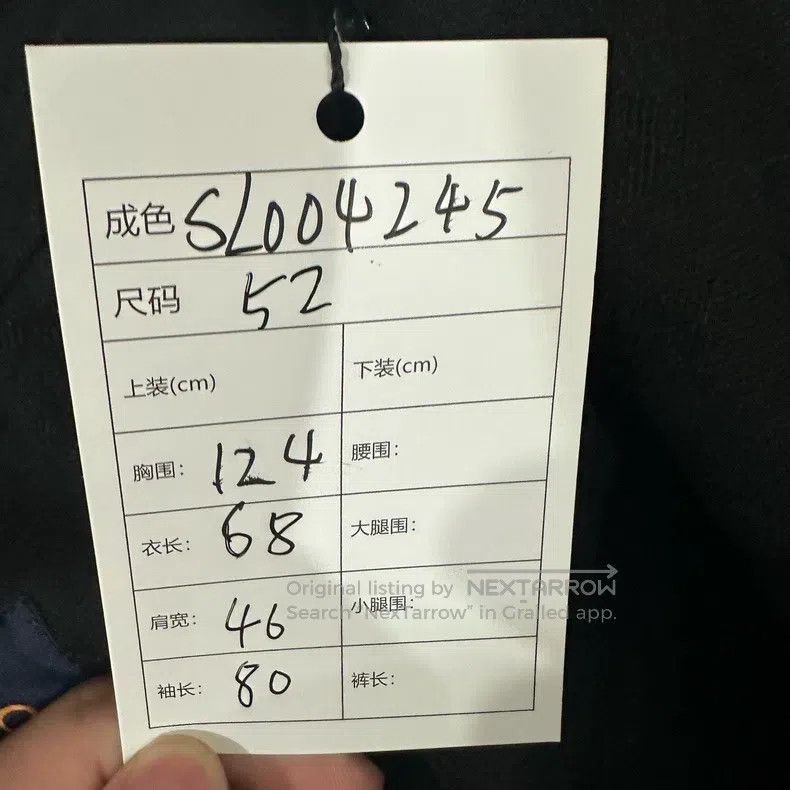 成色 SL004245
尺码 52
上装(cm) 下装(cm)
胸围: 124 腰围:
衣长: 68 大腿围:
Original listing by NEXTARROW
Search "NexTarrow" in Grailed app.
肩宽: 46 小腿围:
袖长: 80 裤长: